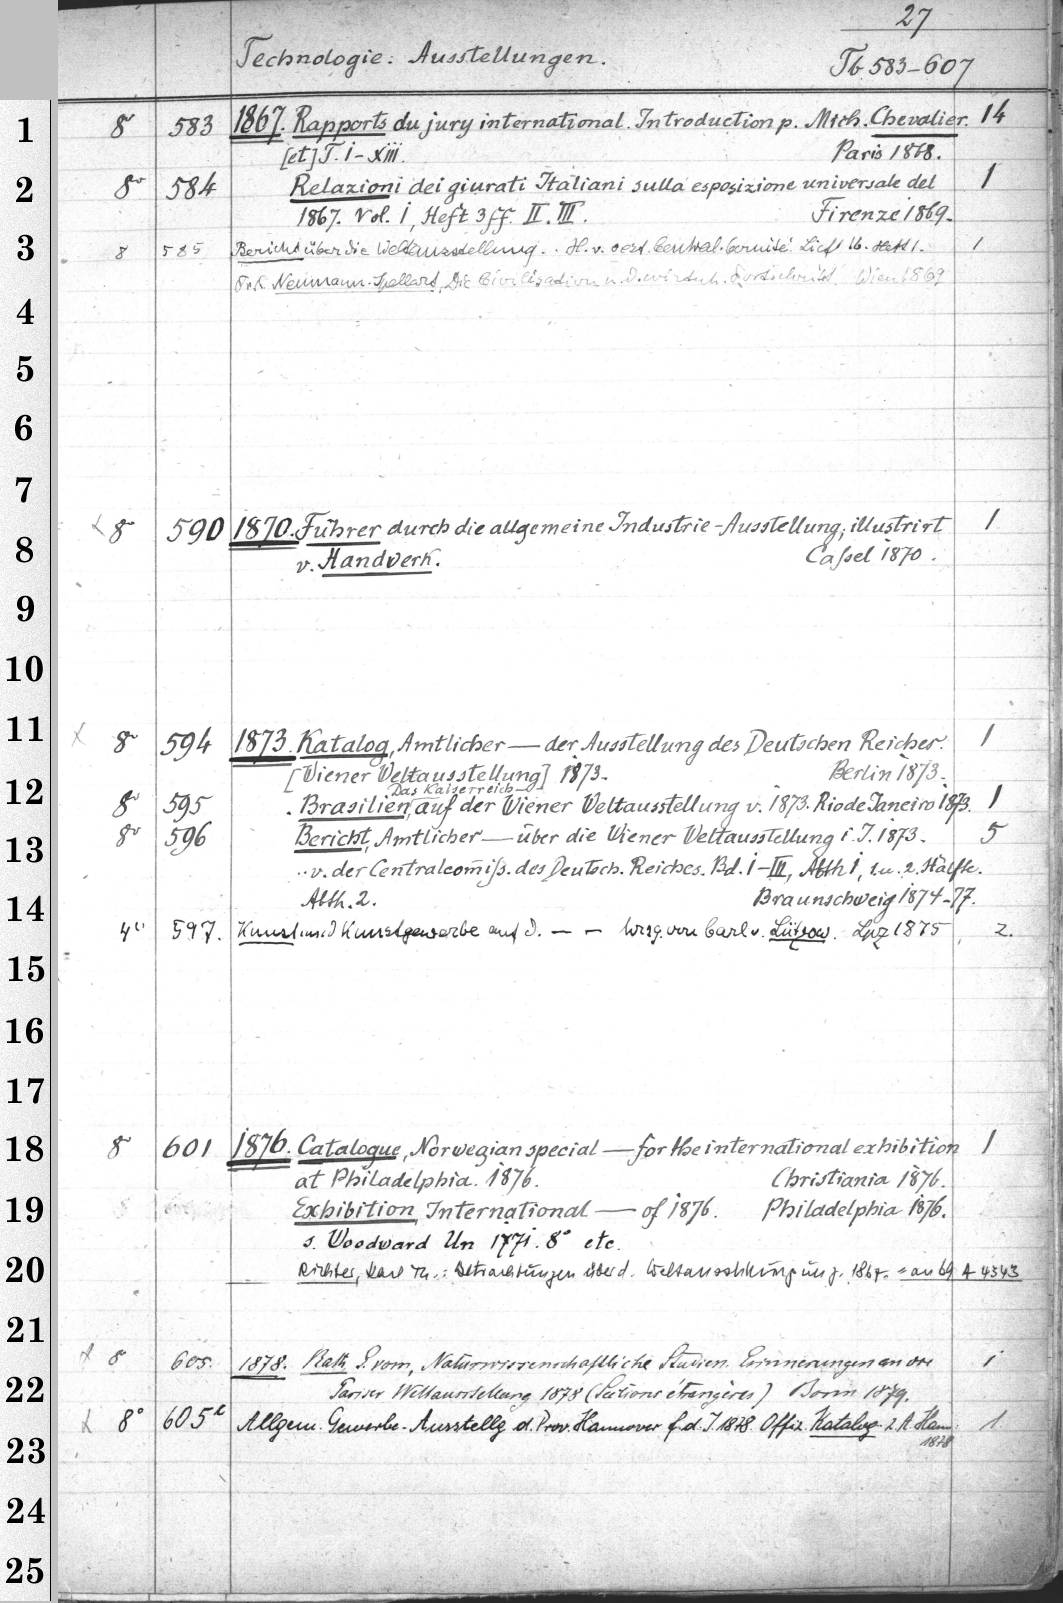 27
Technologie: Ausstellungen. Tb 583-607
1 8° 583 1867. Rapports du jury international. Introduction p. Mich. Chevalier. 14
[et] T. I-XIII. Paris 1868.
2 8° 584 Relazioni dei giurati Italiani sulla esposizione universale del 1
1867. Vol. I, Heft 3ff. II. III. Firenze 1869.
3 8 585 Bericht über die Weltausstellung . . H. v. oest. Central-Comité. Lief 16. Heft 1. 1
F. X. Neumann-Spallart, Die Civilisation u. d. wirtsch. Fortschritt. Wien 1869
4
5
6
7
8° 590 1870. Führer durch die allgemeine Industrie-Ausstellung; illustrirt 1
8 v. Handwerk. Cassel 1870.
9
10
11 8° 594 1873. Katalog, Amtlicher — der Ausstellung des Deutschen Reiches. 1
[Wiener Weltausstellung] 1873. Berlin 1873.
Das Kaiserreich
12 8° 595 . Brasilien, auf der Wiener Weltausstellung v. 1873. Rio de Janeiro 1873. 1
13 8° 596 Bericht, Amtlicher — über die Wiener Weltausstellung i. J. 1873. 5
.. v. der Centralcomiss. des Deutsch. Reiches. Bd. I-III, Abth I, 1. u. 2. Hälfte.
14 Abth. 2. Braunschweig 1874-77.
4° 597. Kunst und Kunstgewerbe auf d. — — hrsg. von Carl v. Lützow. Lpz 1875 2.
15
16
17
18 8° 601 1876. Catalogue, Norwegian special — for the international exhibition 1
at Philadelphia. 1876. Christiania 1876.
19 Exhibition, International — of 1876. Philadelphia 1876.
s. Woodward Un 1771. 8° etc.
20 Richter, Karl Th.: Betrachtungen über d. Weltausstellung im J. 1867. = an 69 A 4343
21
8° 605. 1878. Rath G. vom, Naturwissenschaftliche Studien. Erinnerungen an die 1
22 Pariser Weltausstellung 1878 (Sections étrangères) Bonn 1879.
8° 605 Allgem. Gewerbe-Ausstellg d. Prov. Hannover f. d. J. 1878. Offiz. Katalog 2. A. Han. 1
23 1878
24
25